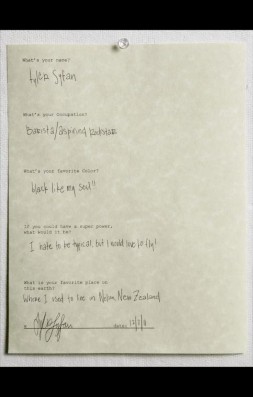 What's your name?
Tyler
What's your Occupation?
Barista/aspiring rockstar
What's your Favorite Color?
black like my soul"
If you could have a super power,
what would it be?
I hate to be typical, but I would love to fly!
What is your favorite place on
this earth?
Where I used to live in New Zealand
x
date: